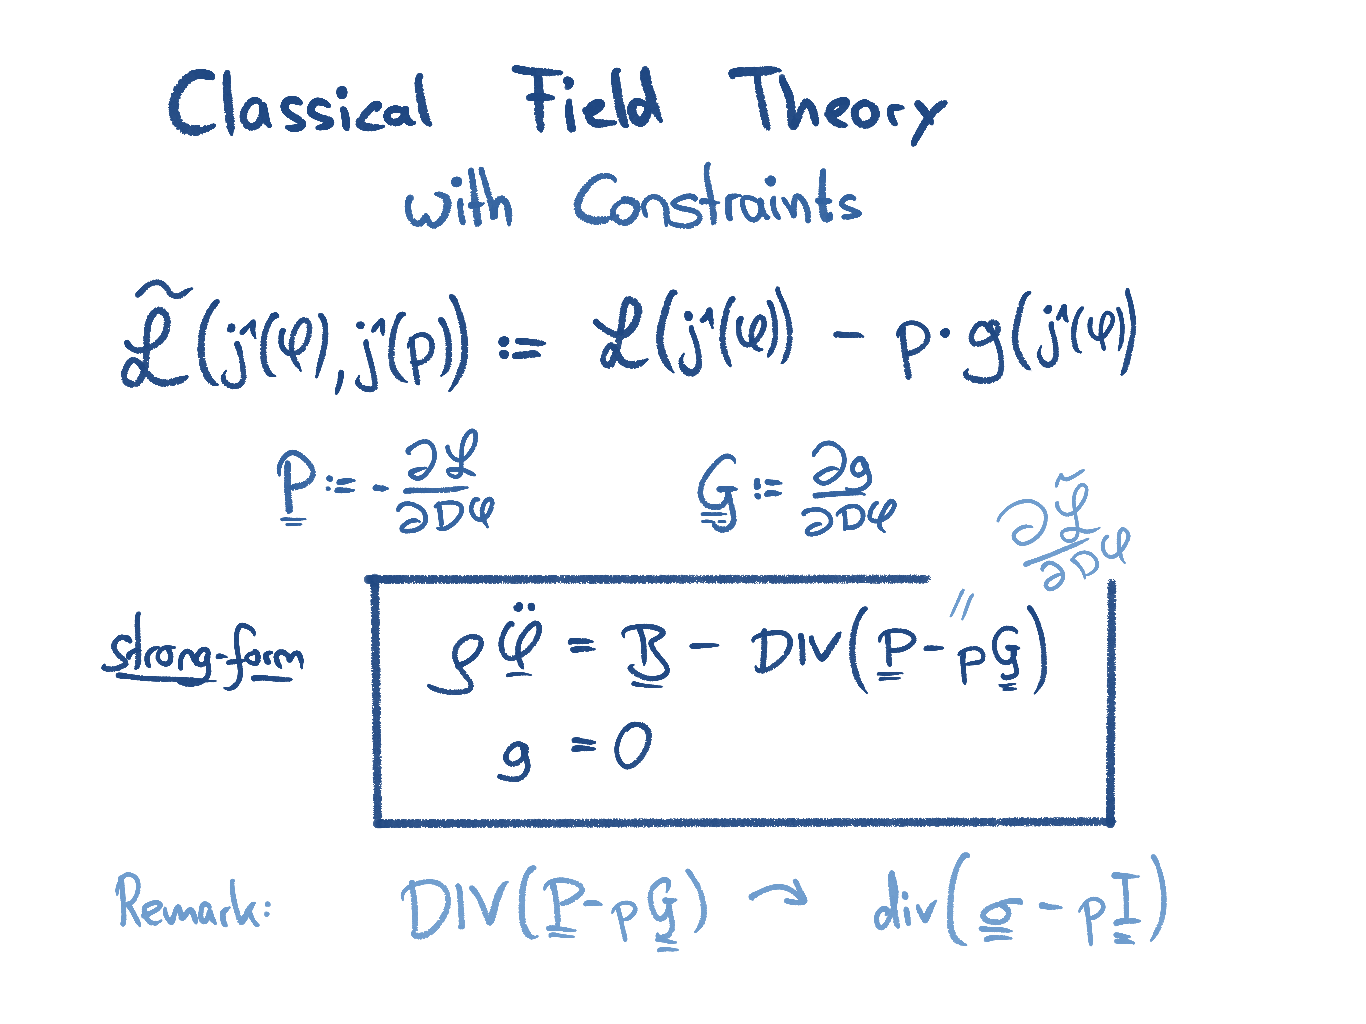 Classical Field Theory
with Constraints
ℒ̃(j¹(φ), j¹(p)) := ℒ(j¹(φ)) − p·g(j¹(φ))
P := - ∂ℒ/∂Dφ
G := ∂g/∂Dφ
∂ℒ̃/∂Dφ
//
strong-form
ρ φ̈ = B − DIV(P − pG)
g = 0
Remark: DIV(P − pG) ↷ div(σ − pI)